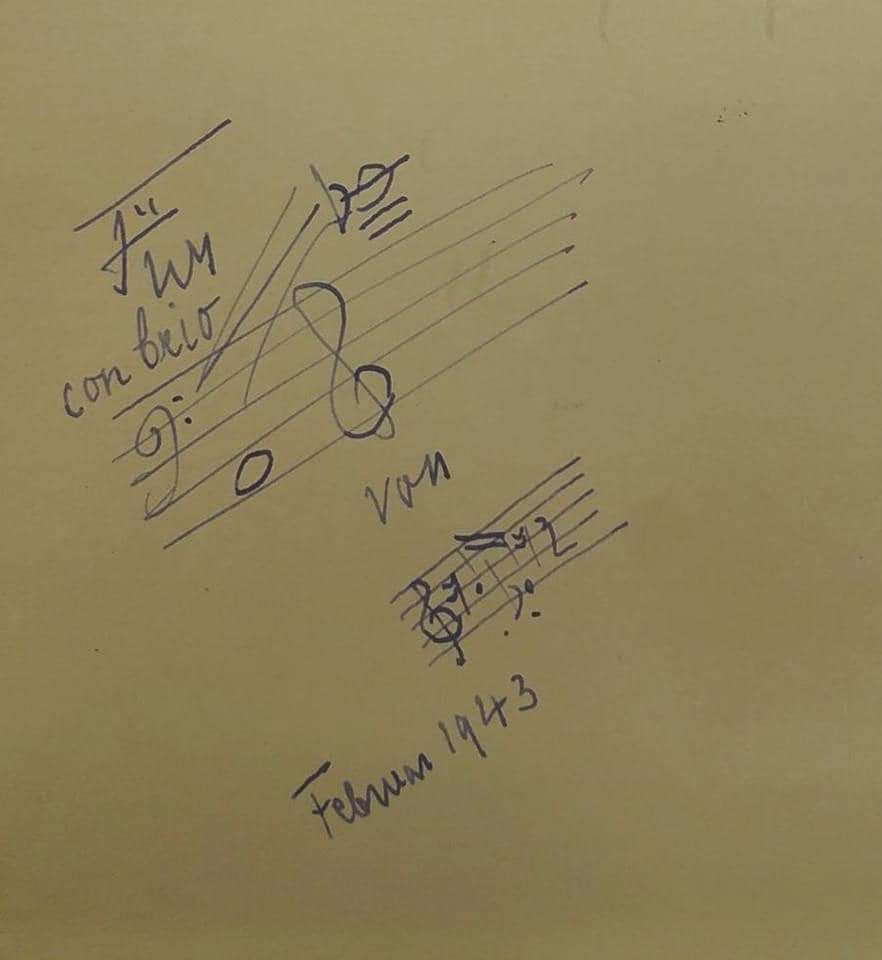 Für
con brio
von
Februar 1943